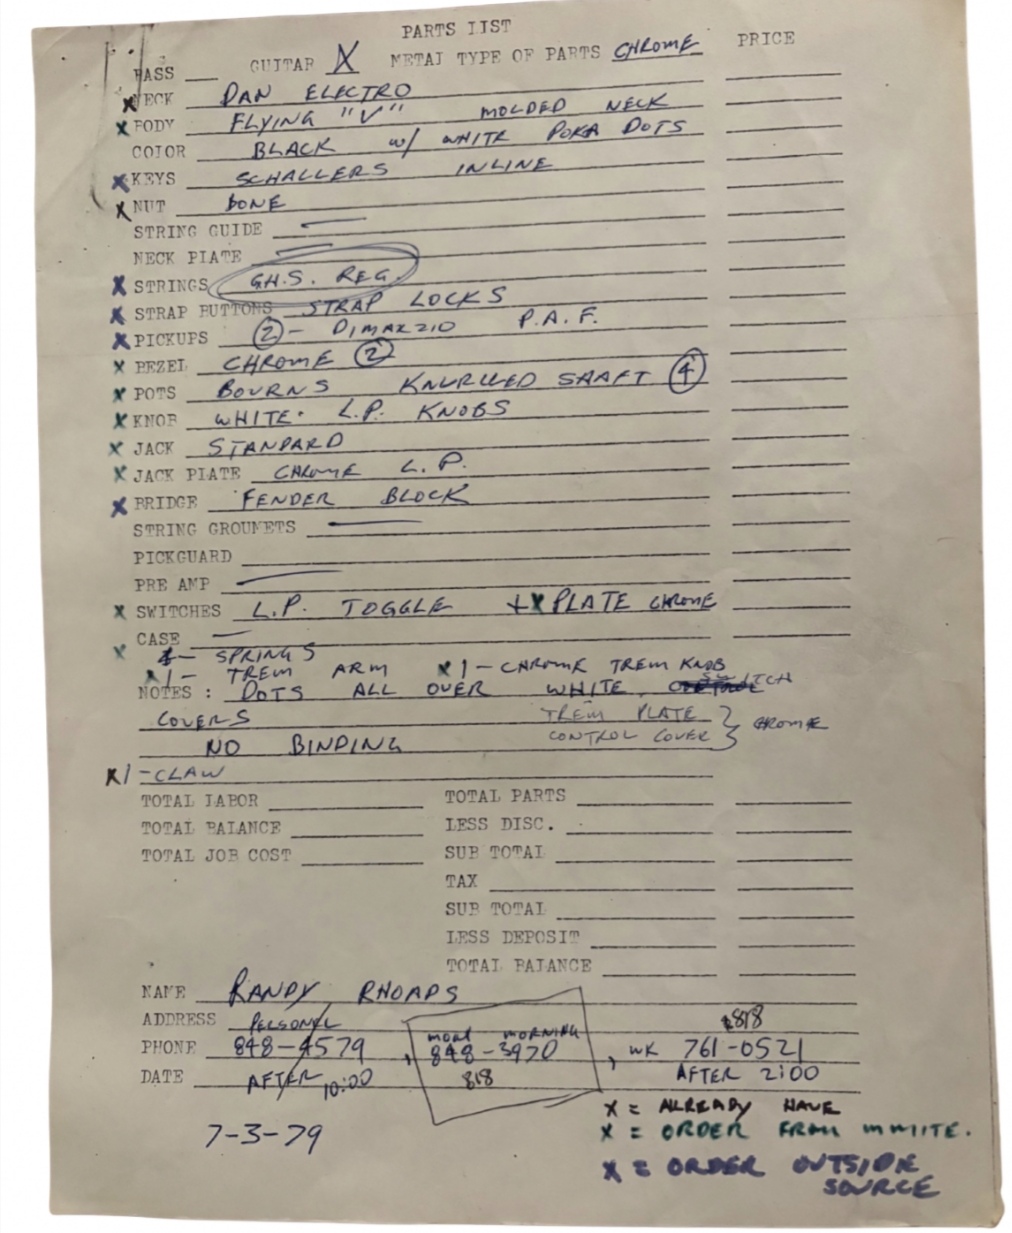 PARTS LIST
BASS ___ GUITAR X METAL TYPE OF PARTS CHROME PRICE
X NECK DAN ELECTRO
X BODY FLYING "V" MOLDED NECK
COLOR BLACK w/ WHITE POKA DOTS
X KEYS SCHALLERS INLINE
X NUT BONE
STRING GUIDE —
NECK PLATE —
X STRINGS G.H.S. REG.
X STRAP BUTTONS STRAP LOCKS
X PICKUPS (2) - DIMARZIO P.A.F.
X BEZEL CHROME (2)
X POTS BOURNS KNURLLED SHAFT (4)
X KNOB WHITE. L.P. KNOBS
X JACK STANDARD
X JACK PLATE CHROME L.P.
X BRIDGE FENDER BLOCK
STRING GROUMETS —
PICKGUARD
PRE AMP —
X SWITCHES L.P. TOGGLE + X PLATE CHROME
CASE —
X - SPRINGS
X 1 - TREM ARM X 1 - CHROME TREM KNOB
NOTES : DOTS ALL OVER WHITE. SWITCH
COVERS TREM PLATE } CHROME
NO BINDING CONTROL COVER }
X 1 - CLAW
TOTAL LABOR TOTAL PARTS
TOTAL BALANCE LESS DISC.
TOTAL JOB COST SUB TOTAL
TAX
SUB TOTAL
LESS DEPOSIT
TOTAL BALANCE
NAME RANDY RHOADS
ADDRESS PERSONEL 818
PHONE 848-4579 , MORN MORNING 848-3970 , WK 761-0521
DATE AFTER 10:00 818 AFTER 2:00
7-3-79
X = ALREADY HAVE
X = ORDER FROM
X = ORDER OUTSIDE
SOURCE